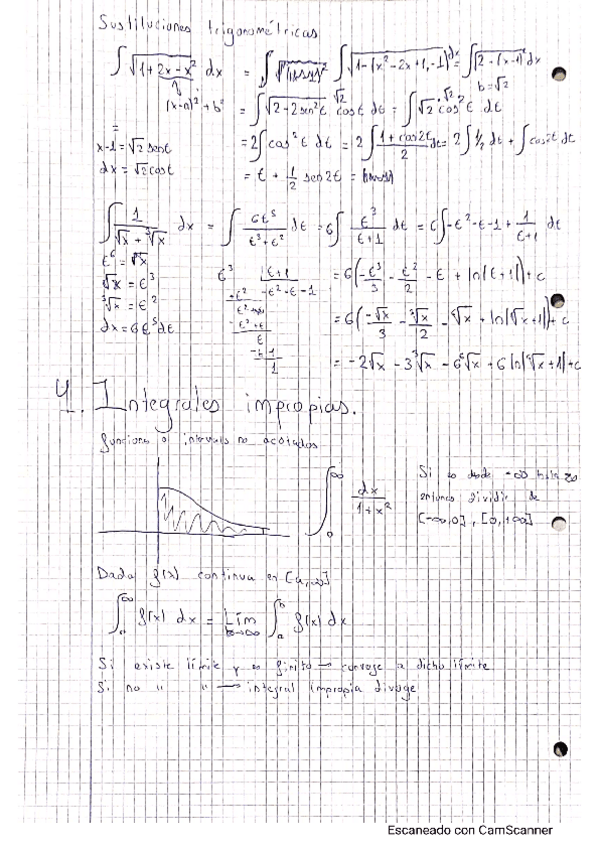 Sustituciones trigonométricas
∫ √(1+2x-x²) dx = ∫ √(1-(x²-2x+1,-1)) dx = ∫ √(2-(x-1)²) dx
(x-n)² + b² b=√2
= ∫ √(2-2sen²t) √2 cost dt = ∫ √2 √2 cos²t dt
x-1=√2 sent
dx=√2 cost
= 2∫ cos²t dt = 2∫ (1+cos2t)/2 dt = 2∫ 1/2 dt + ∫ cos2t dt
= t + 1/2 sen2t =
∫ 1/(√x + ³√x) dx = ∫ 6t⁵/(t³+t²) dt = 6∫ t³/(t+1) dt = 6∫ -t²-t-1+ 1/(t+1) dt
t⁶ = x
√x = t³
³√x = t²
dx = 6t⁵dt
t³ | t+1
-t²-t-1
= 6(-t³/3 - t²/2 - t + ln|t+1|)+c
= 6(-√x/3 - ³√x/2 - ⁶√x + ln|⁶√x+1|)+c
= -2√x - 3³√x - 6⁶√x + 6 ln|⁶√x+1|+c
4. Integrales impropias.
funciones o intervalos no acotados
∫₀^∞ dx/(1+x²)
Si es desde -∞ hasta ∞
entonces dividir de
[-∞,0], [0,+∞]
Dada f(x) continua en [a,∞]
∫ₐ^∞ f(x) dx = Lím b→∞ ∫ₐ^b f(x) dx
Si existe límite y es finito → converge a dicho límite
Si no " " → integral impropia diverge
Escaneado con CamScanner